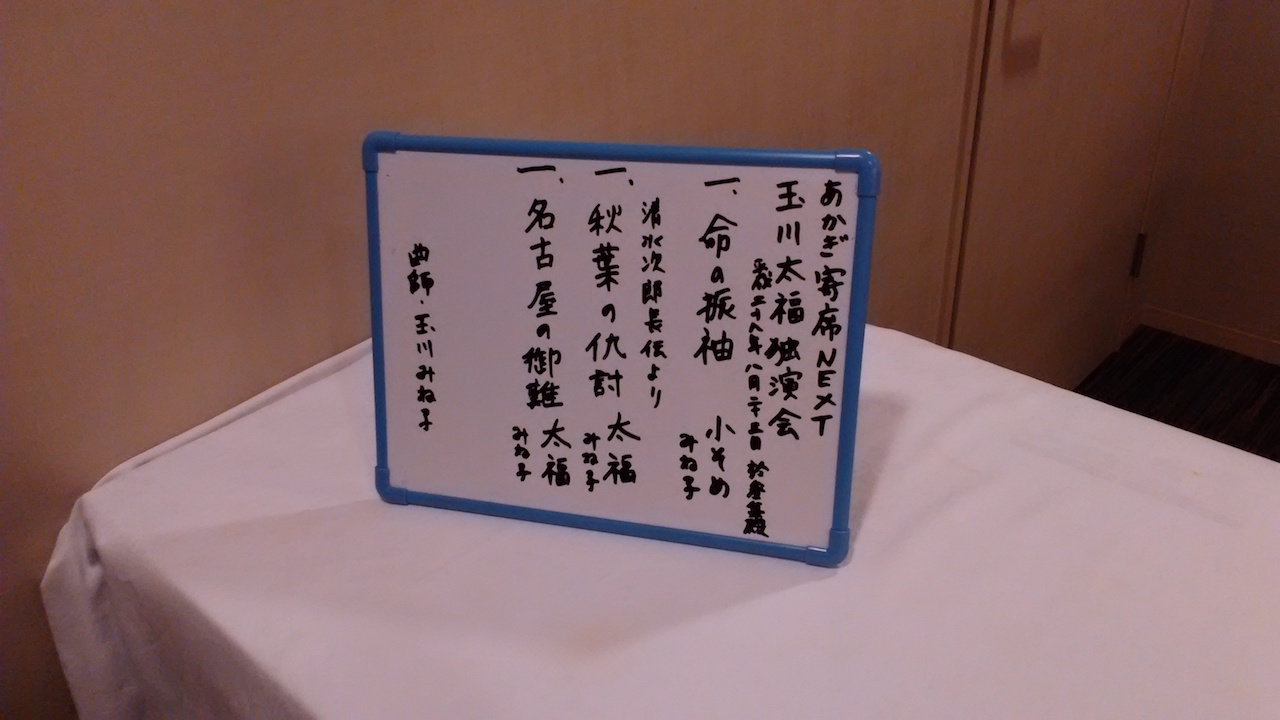 あかぎ寄席NEXT
玉川太福独演会
平成二十八年八月二十三日
一、命の振袖 小そめ
みね子
清水次郎長伝より
一、秋葉の仇討 太福
みね子
一、名古屋の御難 太福
みね子
曲師・玉川みね子